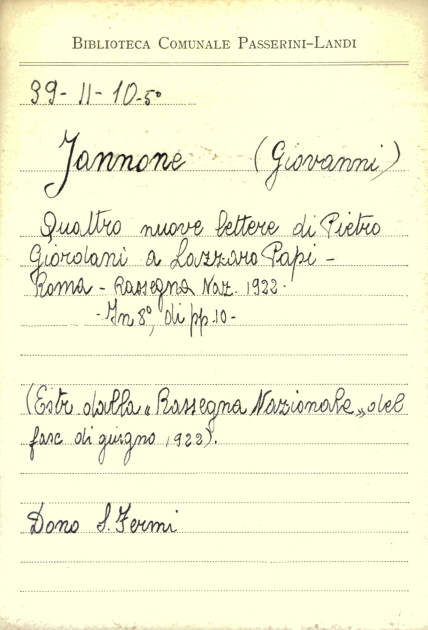 BIBLIOTECA COMUNALE PASSERINI-LANDI
39-II-10-5°
Jannone (Giovanni)
Quattro nuove lettere di Pietro
Giordani a Lazzaro Papi -
Roma - Rassegna Naz. 1922.
- In 8°, di pp. 10 -
(Estr. dalla « Rassegna Nazionale » del
fasc di giugno 1922).
Dono S. Fermi